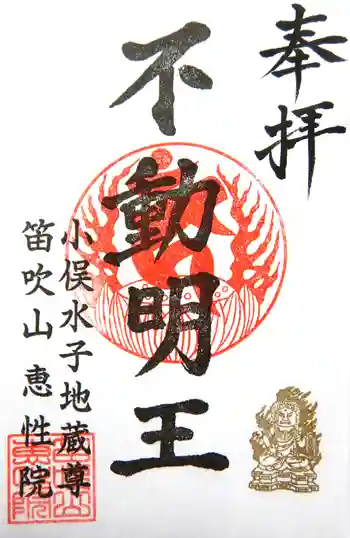 奉拝
不動明王
小俣水子地蔵尊
笛吹山 恵性院